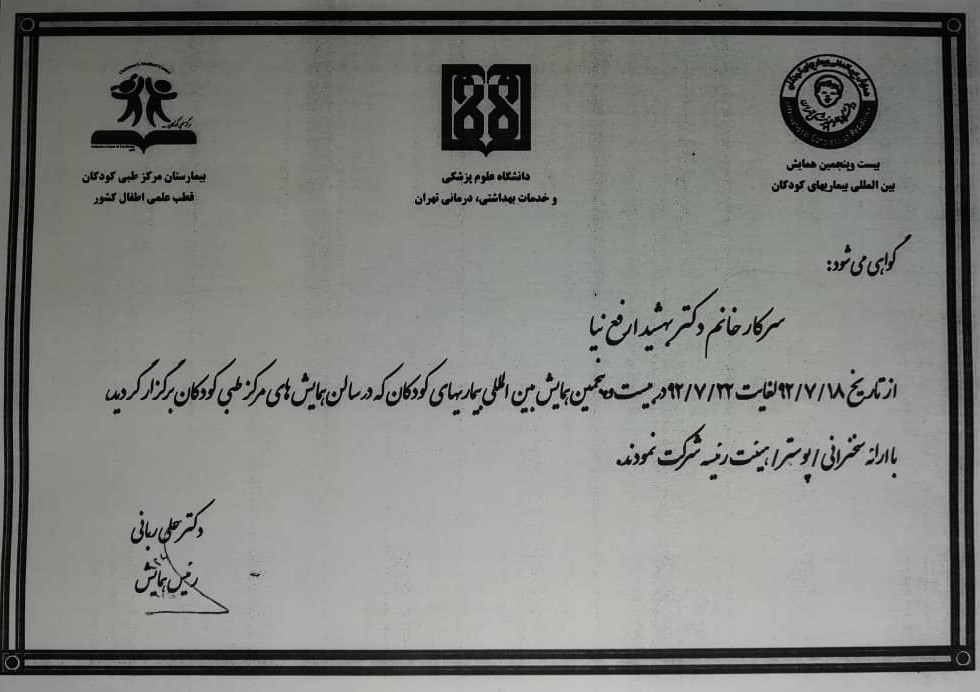 بیست وپنجمین همایش
بین المللی بیماریهای کودکان
دانشگاه علوم پزشکی
و خدمات بهداشتی، درمانی تهران
بیمارستان مرکز طبی کودکان
قطب علمی اطفال کشور
گواهی می شود:
سرکار خانم دکتر بهشید ارفع نیا
از تاریخ ۹۲/۷/۱۸ لغایت ۹۲/۷/۲۲ در بیست و پنجمین همایش بین المللی بیماریهای کودکان که در سالن همایش های مرکز طبی کودکان برگزار گردید،
با ارائه سخنرانی / پوستر / هیئت رئیسه شرکت نمودند.
دکتر علی ربانی
رئیس همایش